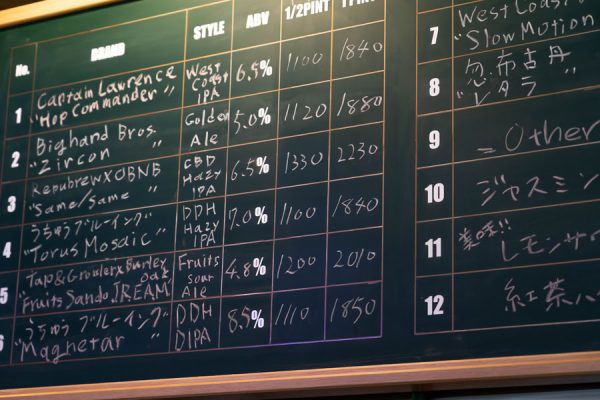 No. BRAND STYLE ABV 1/2PINT 1PINT
1 Captain Lawrence West Coast IPA 6.5% 1100 1840
"Hop Commander"
2 Bighand Bros. Golden Ale 5.0% 1120 1880
"Zircon"
3 RepubrewXOBNB CBD Hazy IPA 6.5% 1330 2230
"Same/Same"
4 うちゅうブルーイング DDH Hazy IPA 7.0% 1100 1840
"Torus Mosaic"
5 Tap&GrowlerxBurley oak Fruits sour Ale 4.8% 1200 2010
"Fruits Sando JREAM"
6 "うちゅうブルーイング DDH DIPA 8.5% 1110 1850
Magnetar "
7 West Coast
"Slow Motion
8 忽布古丹
"レタラ "
9 Other
10 ジャスミン
11 レモンサ
12 紅茶ハ